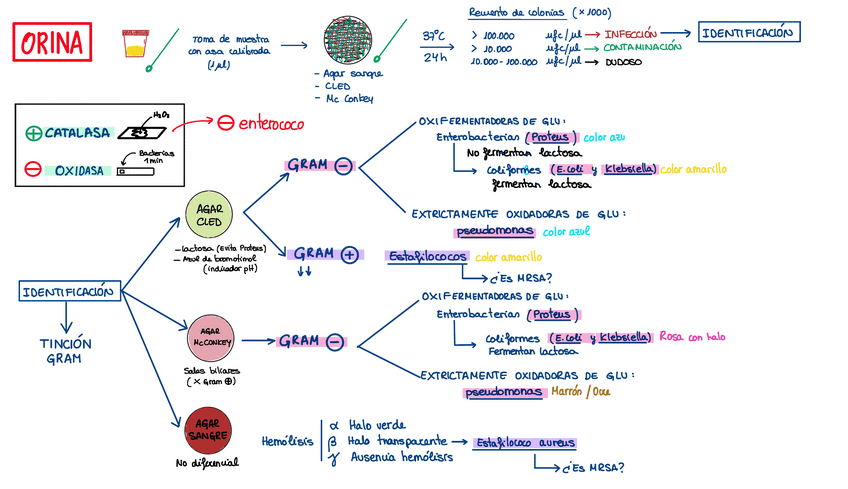 ORINA
Toma de muestra
con asa calibrada
(1 µl)
- Agar sangre
- CLED
- Mc Conkey
37ºC
24h
Recuento de colonias (x1000)
> 100.000 ufc/µl → INFECCIÓN
> 10.000 ufc/µl → CONTAMINACIÓN
10.000-100.000 ufc/µl → DUDOSO
IDENTIFICACIÓN
+ CATALASA
H2O2
- OXIDASA
Bacterias
1 min
- enterococo
IDENTIFICACIÓN
TINCIÓN
GRAM
AGAR
CLED
- Lactosa (Evita Proteus)
- Azul de bromotimol
(indicador pH)
GRAM -
OXIFERMENTADORAS DE GLU:
Enterobacterias (Proteus) color azul
No fermentan lactosa
Coliformes (E.coli y Klebsiella) color amarillo
fermentan lactosa
EXTRICTAMENTE OXIDADORAS DE GLU:
pseudomonas color azul
GRAM +
↓↓
Estafilococos color amarillo
¿Es MRSA?
AGAR
McCONKEY
Sales biliares
(x Gram +)
GRAM -
OXIFERMENTADORAS DE GLU:
Enterobacterias (Proteus)
Coliformes (E.coli y Klebsiella) Rosa con halo
Fermentan lactosa
EXTRICTAMENTE OXIDADORAS DE GLU:
pseudomonas Marrón / Ocre
AGAR
SANGRE
No diferencial
Hemólisis
α Halo verde
β Halo transparente → Estafilococo aureus
γ Ausencia hemólisis
¿Es MRSA?